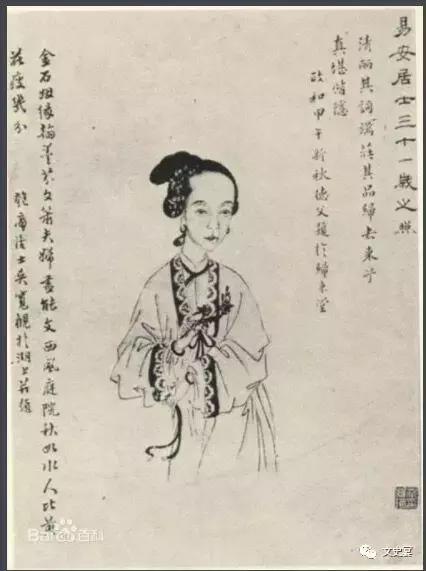 易安居士三十一歲之照
清麗其詞端莊其品歸去來兮
真堪偕隱
政和甲午新秋德父題於歸來堂
金石姻緣翰墨芬文簫夫婦盡能文西風庭院秋如水人比黃
花瘦幾分
匏庵居士吳寬觀於湖上題
Baidu百科
文史宴